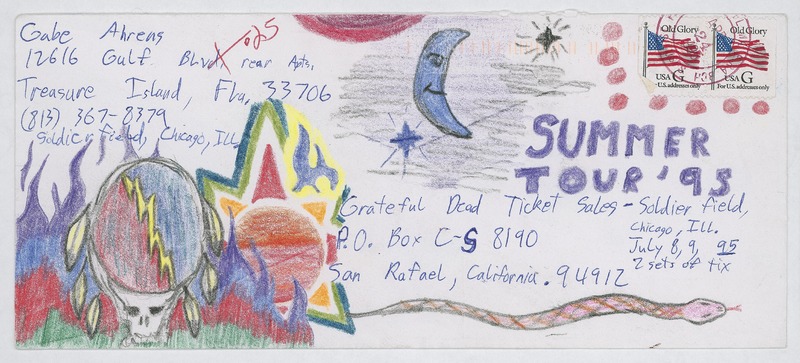 Gabe Ahrens
12616 Gulf Blvd rear Apts.
Treasure Island, Fla, 33706
(813) 367-8379
Soldier field, Chicago, Ill
Old Glory
USA G
For U.S. addresses only
Old Glory
USA G
For U.S. addresses only
SUMMER
TOUR '95
Grateful Dead Ticket Sales - Soldier field,
Chicago, Ill.
July 8, 9, 95
2 sets of tix
P.O. Box C-S 8190
San Rafael, California. 94912